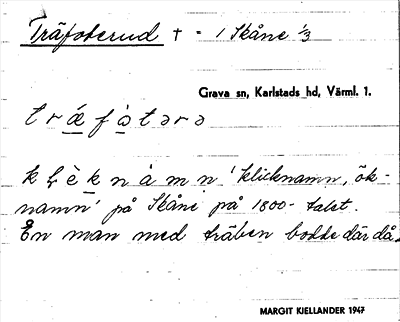 Träfoterud + = 1 Skåne 1/3
Grava sn, Karlstads hd, Värml. 1.
t r ǽ f ò t ə r ə
k l è k n à m n 'klicknamn, ök-
namn' på Skåne på 1800-talet.
En man med träben bodde där då.
MARGIT KJELLANDER 1947